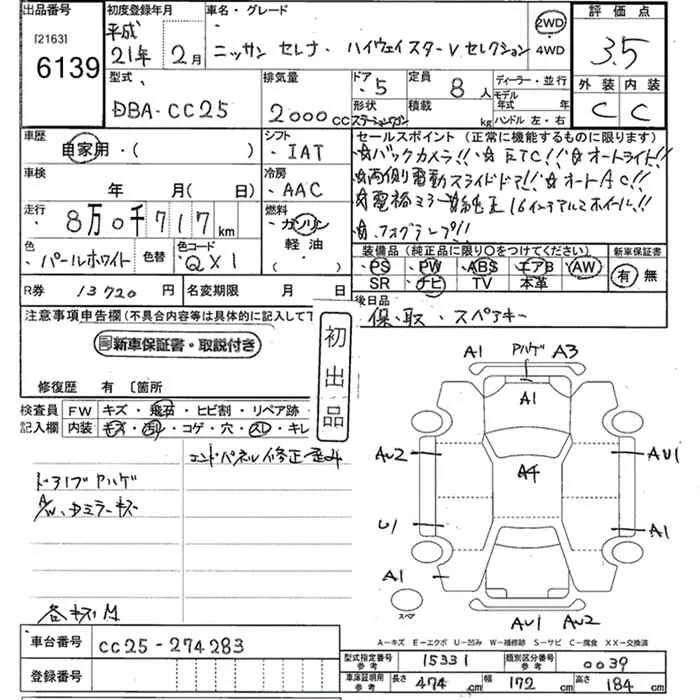 出品番号
[2163]
6139
初度登録年月
平成
21年 2月
車名・グレード
ニッサン セレナ ・ ハイウェイスターV セレクション
2WD
4WD
評価点
3.5
外装 内装
C C
型式
DBA-CC25
排気量
2000cc
ドア・5
形状
ステーションワゴン
定員 8人
積載 kg
ディーラー・並行
モデル年式 年
ハンドル 左・右
車歴
自家用・( )
シフト
・IAT
車検
年 月( 日)
冷房
・AAC
走行
8万0千717km
燃料
ガソリン
軽油
( )
色
・パールホワイト
色替
色コード
QX1
セールスポイント(正常に機能するものに限ります)
☆バックカメラ!! ☆ETC!! ☆オートライト!!
☆両側電動スライドドア!! ☆オートAC!!
☆電格ミラー ☆純正16インチアルミホイール!!
☆フォグランプ!!
装備品(純正品に限り○をつけてください)
PS PW ABS エアB AW
SR ナビ TV 本革
新車保証書
有 無
R券 13720円
名変期限 月 日
後日品
保、取、スペアキー
注意事項申告欄(不具合内容等は具体的に記入して下
新車保証書・取説付き
修復歴 有〔箇所
初出品
検査員記入欄
FW キズ・飛石・ヒビ割・リペア跡・
内装 キズ・汚れ・コゲ・穴・スレ・キレ
エンドパネル修正歪み
ドアノブ Pハゲ
A/W、ドミラーキズ
各キズM
A1 Pハゲ A3
A1
AU2 A4 AU1
U1 A1
A1
スペア
AU1 AU2
A-キズ E-エクボ U-凹み W-補修跡 S-サビ C-腐食 XX-交換済
車台番号
CC25-274283
登録番号
型式指定番号参考 15331
類別区分番号参考 0039
車庫証明用参考 長さ 474cm 幅 172cm 高さ 184cm